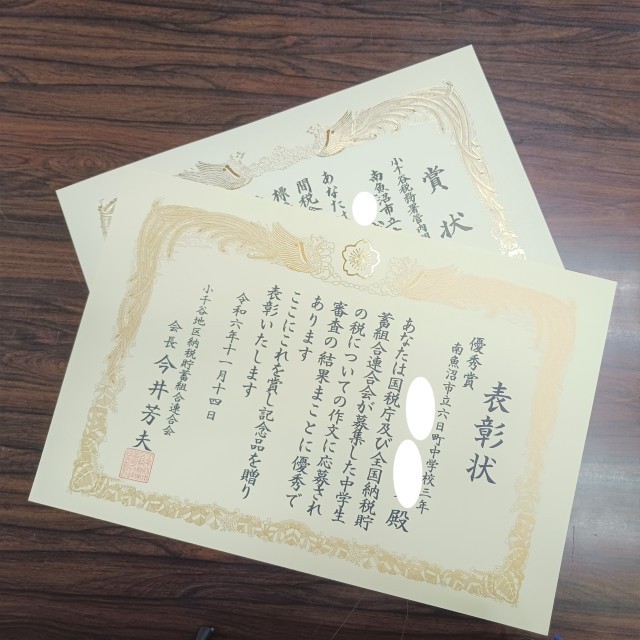 表彰状
優秀賞
南魚沼市立六日町中学校三年
殿
あなたは国税庁及び全国納税貯
蓄組合連合会が募集した中学生
の税についての作文に応募され
審査の結果まことに優秀で
あります
ここにこれを賞し記念品を贈り
表彰いたします
令和六年十一月十四日
小千谷地区納税貯蓄組合連合会
会長 今井芳夫
賞状
小千谷税務署管内
南魚沼市立
あなた
間税